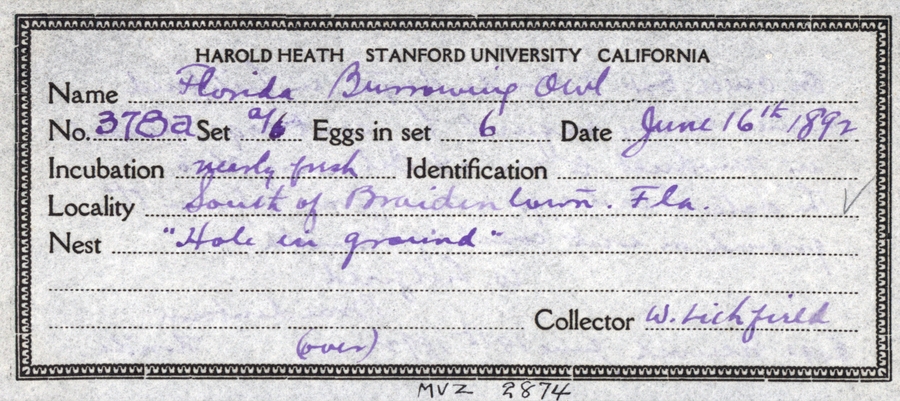 HAROLD HEATH STANFORD UNIVERSITY CALIFORNIA
Name Florida Burrowing Owl
No. 378a Set a/6 Eggs in set 6 Date June 16th 1892
Incubation nearly fresh Identification
Locality South of Braidentown. Fla.
Nest "Hole in ground"
Collector W. Lichfield
(over)
MVZ 2874